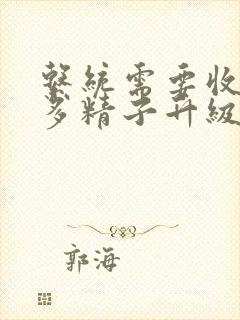 繫統需要收
多精子升級
郭海